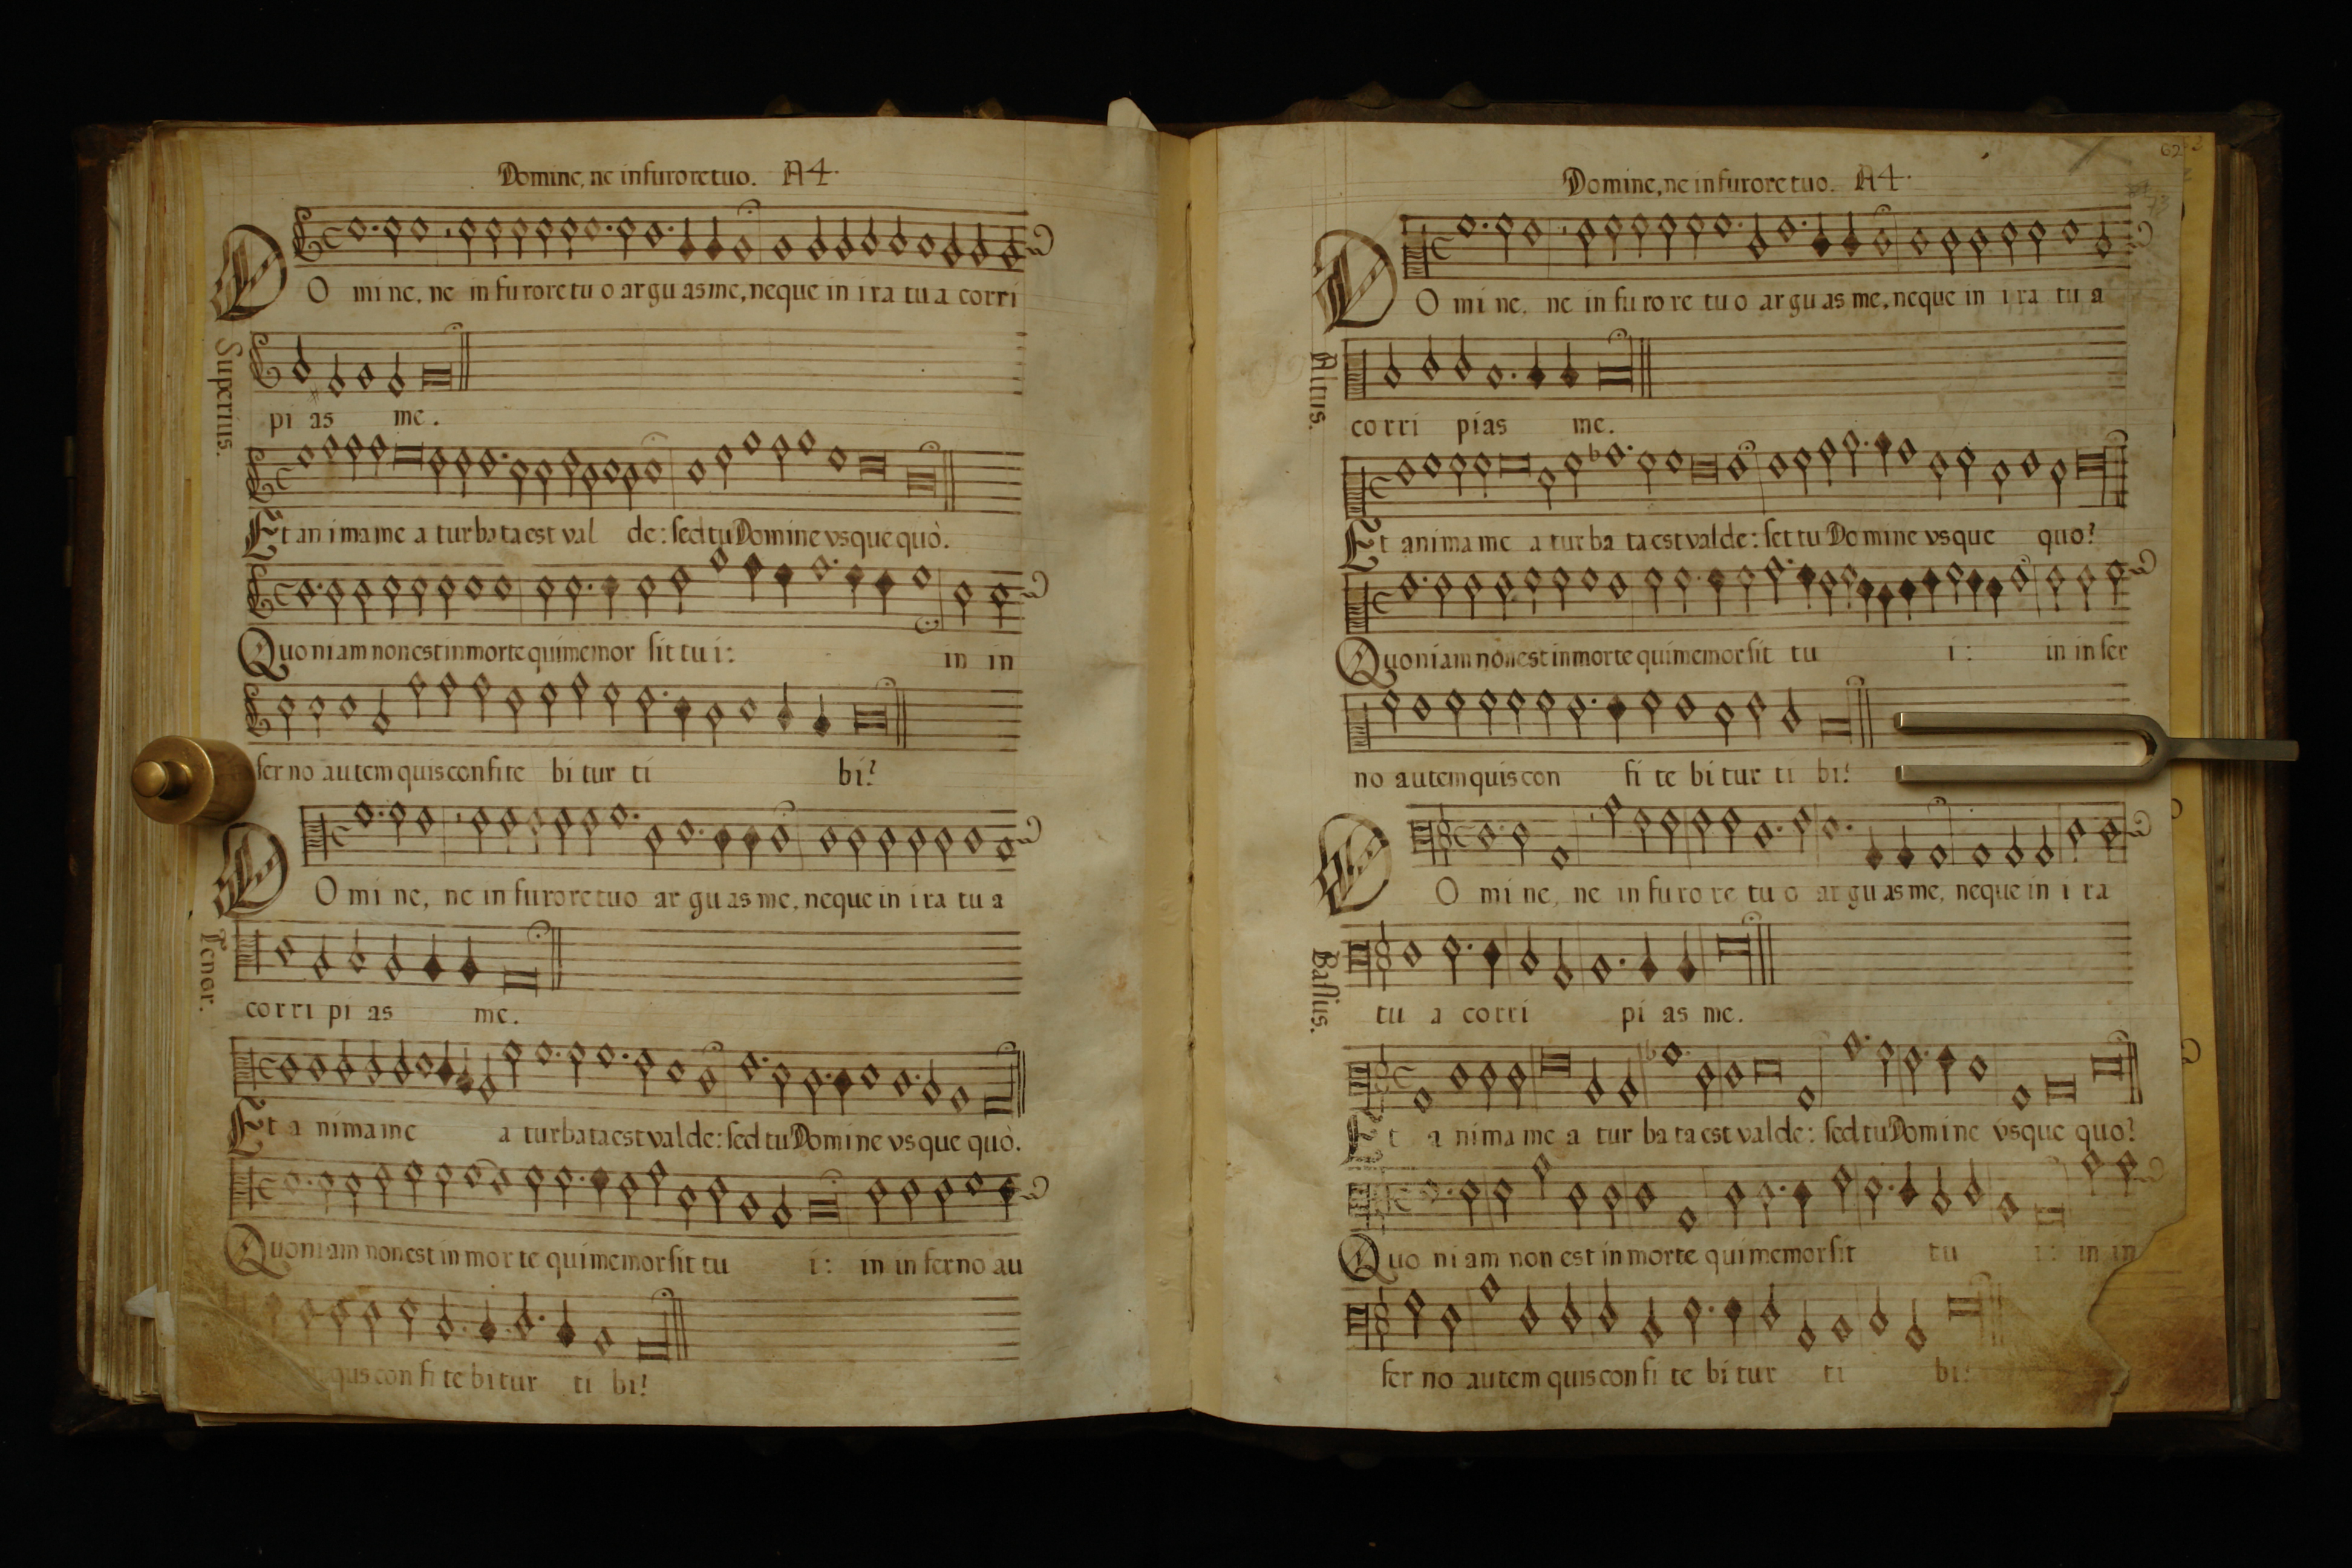 Domine, ne in furore tuo. A4.
DO mi ne, ne in fu rore tu o ar gu as me, neque in i ra tu a corri
Superius.
pi as me.
Et an i ma me a tur ba ta est val de: sed tu Domine vsque quò.
Quo ni am non est in morte qui memor sit tu i: in in
fer no au tem quis con fite bi tur ti bi?
DO mi ne, ne in fu rore tuo ar gu as me, neque in i ra tu a
Tenor.
corri pi as me.
Et a ni ma me a tur ba ta est val de: sed tu Domi ne vs que quò.
Quoni am non est in mor te qui memor sit tu i: in in fer no au
quis con fi te bi tur ti bi?
62
Domine, ne in furore tuo. A4.
DO mi ne, ne in fu ro re tu o ar gu as me, neque in i ra tu a
Altus.
corri pias me.
Et anima me a tur ba ta est valde: set tu Do mine vsque quo?
Quoniam non est in morte qui memor sit tu i: in in fer
no autem quis con fi te bi tur ti bi?
DO mi ne, ne in fu ro re tu o ar gu as me, neque in i ra
Bassus.
tu a corri pi as me.
Et a ni ma me a tur ba ta est val de: sed tu Domi ne vsque quo?
Quo ni am non est in morte qui memor sit tu i: in in
fer no autem quis con fi te bi tur ti bi?